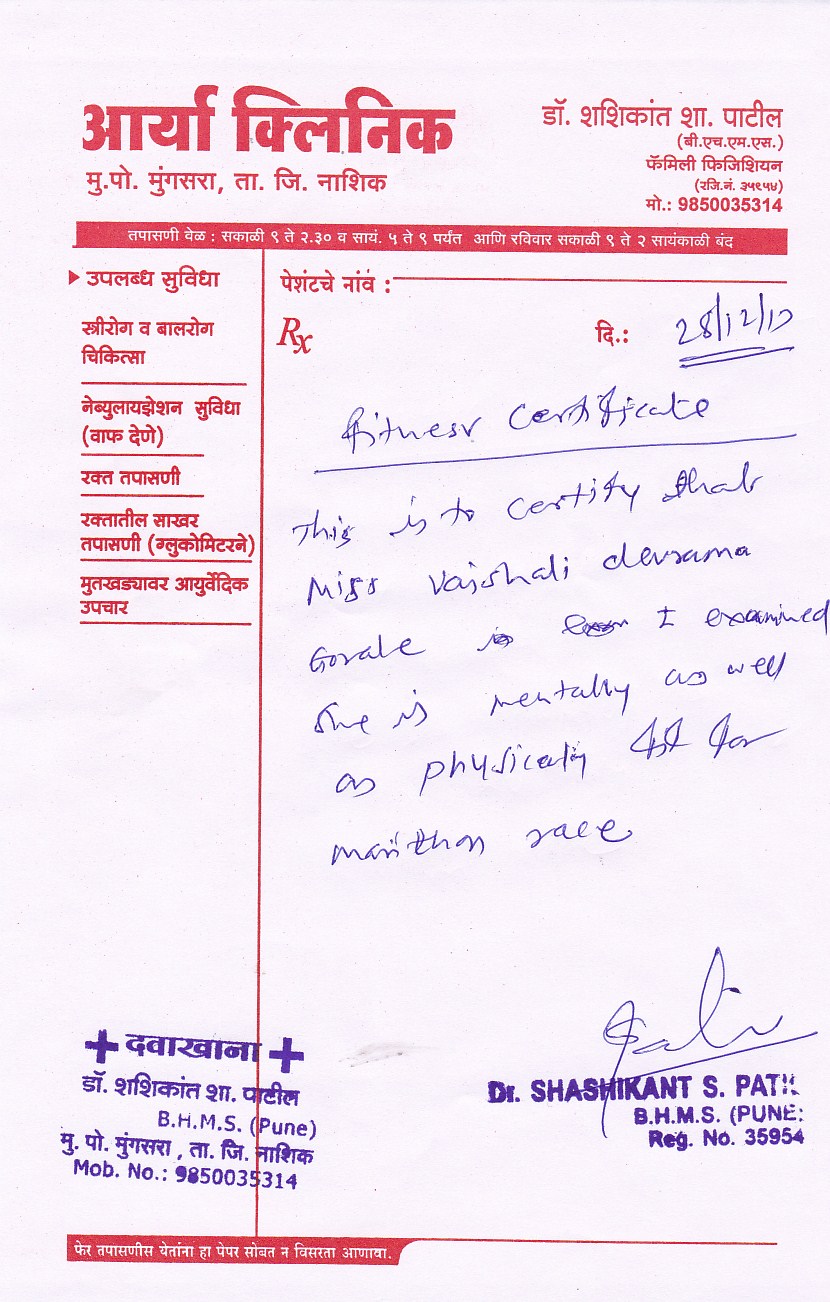 आर्या क्लिनिक
मु.पो. मुंगसरा, ता. जि. नाशिक
डॉ. शशिकांत शा. पाटील
(बी.एच.एम.एस.)
फॅमिली फिजिशियन
(रजि.नं. ३५९५४)
मो.: 9850035314
तपासणी वेळ : सकाळी ९ ते २.३० व सायं. ५ ते ९ पर्यंत आणि रविवार सकाळी ९ ते २ सायंकाळी बंद
उपलब्ध सुविधा
स्त्रीरोग व बालरोग
चिकित्सा
नेब्युलायझेशन सुविधा
(वाफ देणे)
रक्त तपासणी
रक्तातील साखर
तपासणी (ग्लुकोमिटरने)
मुतखड्यावर आयुर्वेदिक
उपचार
पेशंटचे नांव :
Rx
दि.: 28/12/17
fitness certificate
This is to certify that
Miss Vaishali devrama
Gorale is I examined
She is mentally as well
as physically fit for
marithon race
Patil
दवाखाना
डॉ. शशिकांत शा. पाटील
B.H.M.S. (Pune)
मु. पो. मुंगसरा , ता. जि. नाशिक
Mob. No.: 9850035314
Dr. SHASHIKANT S. PATIL
B.H.M.S. (PUNE)
Reg. No. 35954
फेर तपासणीस येतांना हा पेपर सोबत न विसरता आणावा.